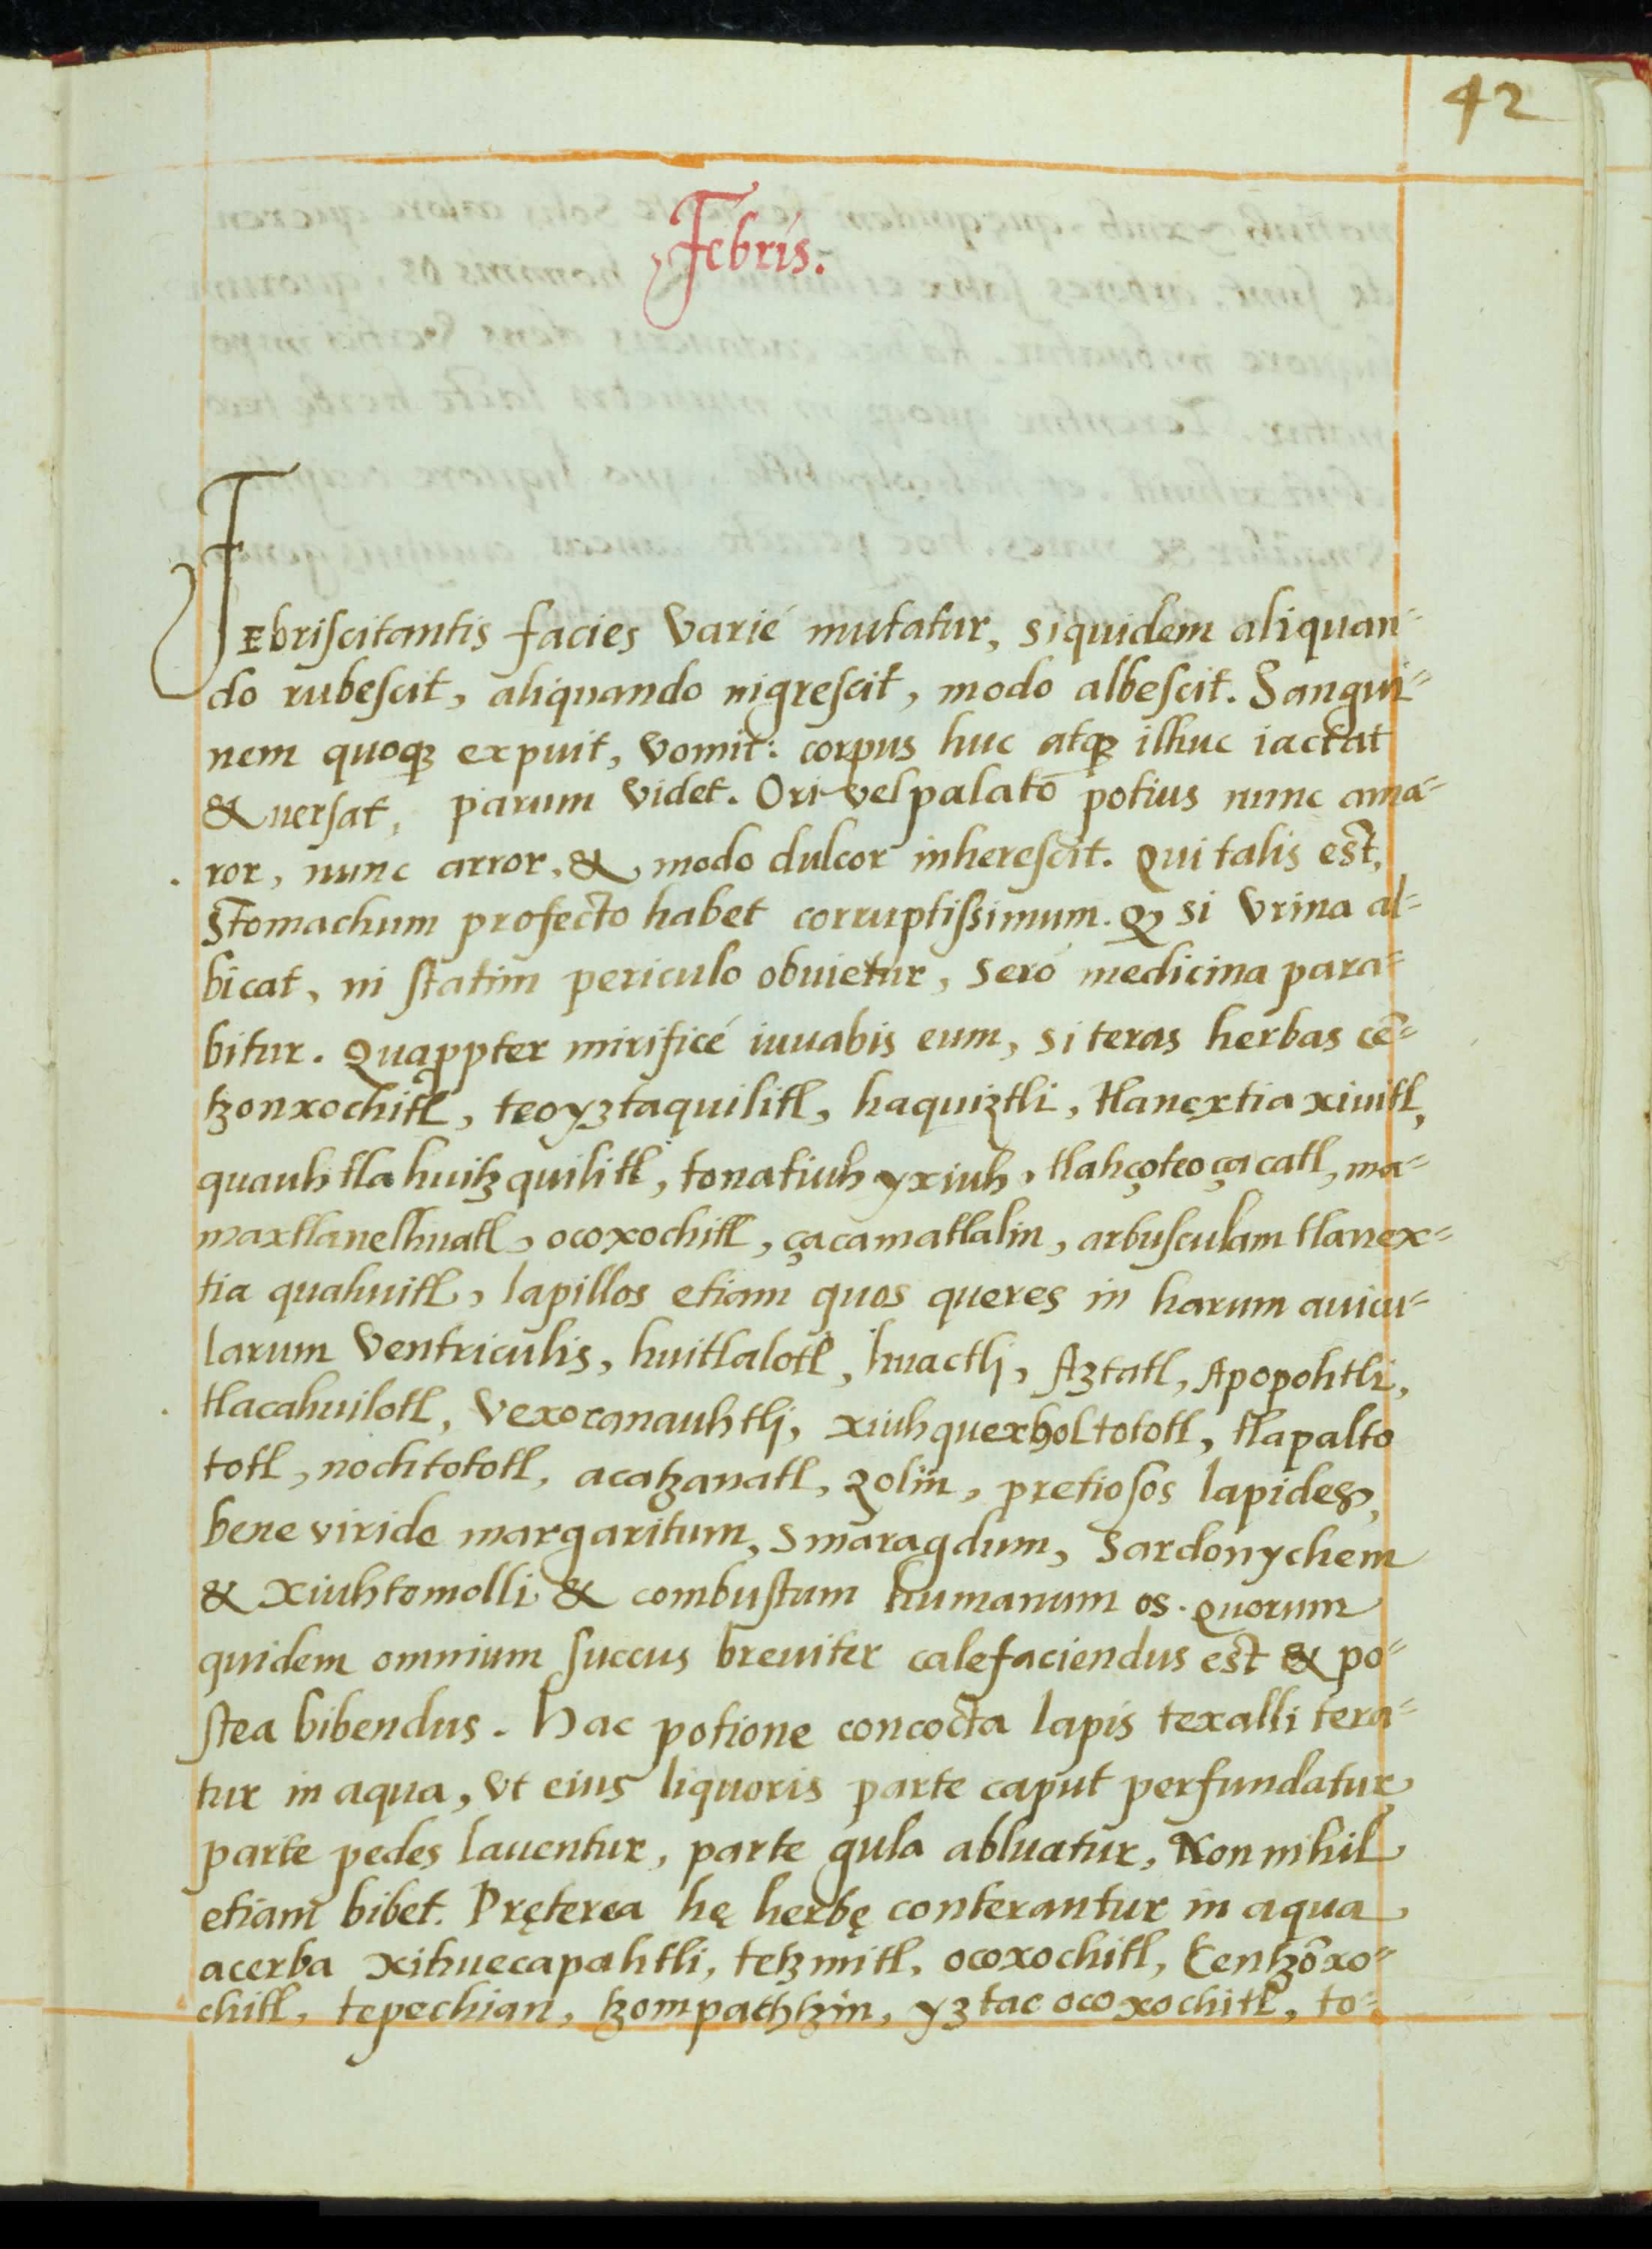 42
Febris.
FEbriſcitantis facies varié mutatur, siquidem aliquan=
do rubeſcit, aliquando nigreſcit, modo albeſcit. Sangui=
nem quoqꝫ expuit, vomit: corpus huc atqꝫ illuc iactat
& uerſat, parum videt. Ori vel palato potius nunc ama=
ror, nunc arror, & modo dulcor inhereſcit. Qui talis est,
Stomachum profecto habet corruptiſsimum. Qꝫ si vrina al=
bicat, ni ſtatim periculo obuietur, seró medicina para=
bitur. Quaꝓpter mirificé iuuabis eum, si teras herbas cē=
tzonxochitl, teoyztaquilitl, haquiztli, tlanextia xiuitl,
quauhtlahuitzquilitl, tonatiuh yxiuh, tlahçoteoçacatl, ma=
maxtlanelhuatl, ocoxochitl, çacamatlalin, arbuſculam tlanex=
tia quahuitl, lapillos etiam quos queres in harum auicu=
larum ventriculis, huitlalotl, huactlj, Aztatl, Apopohtli,
tlacahuilotl, vexocanauhtlj, xiuhquexholtototl, tlapalto
totl, nochtototl, acatzanatl, zolin, pretioſos lapides,
bene viride margaritum, smaragdum, Sardonychem
& xiuhtomolli & combuſtum humanum os. Quorum
quidem omnium ſuccus breuiter calefaciendus est & po=
ſtea bibendus. Hac potione concocta lapis texalli tera=
tur in aqua, vt eius liquoris parte caput perfundatur
parte pedes lauentur, parte gula abluatur, Non nihil
etiam bibet. Pręterea hę herbę conterantur in aqua
acerba xihuecapahtli, tetzmitl, ocoxochitl, Centzōxo=
chitl, tepechian, tzompachtzin, yztac ocoxochitl, to=